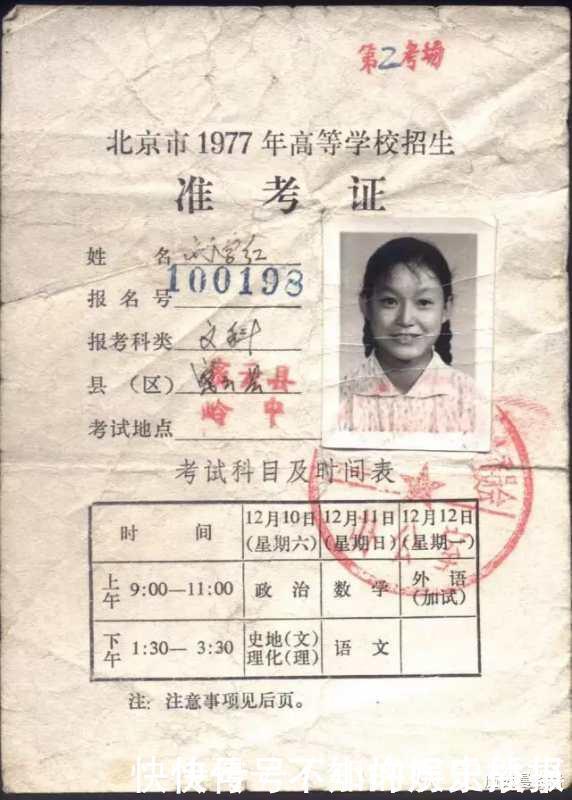 第2考场
北京市1977年高等学校招生
准考证
姓名 刘学红
报名号 100198
报考科类 文科
县（区） 密云县
考试地点 岭中
考试科目及时间表
时间 12月10日(星期六) 12月11日(星期日) 12月12日(星期一)
上午 9:00—11:00 政治 数学 外语(加试)
下午 1:30—3:30 史地(文)理化(理) 语文
注：注意事项见后页。
快快传号不知的娱乐